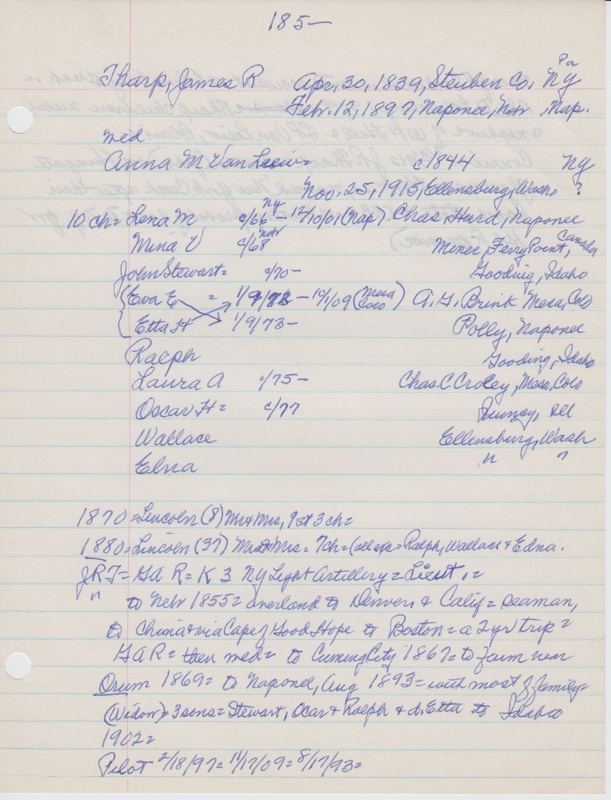 185—
Tharp, James R Apr, 30, 1839, Steuben Co, Pa NY
Febr. 12, 1897, Naponee, Nebr, Nap.
med
Anna M Van c1844 NY
Nov. 25, 1915, Ellensburg, Wash ?
10 ch= Lena M c/66 NY - 12/10/01 (Nap) Chas Hurd, Naponee
Mina V c/68 Nebr Miner, Ferry Point, Canada
John Stewart= c/70- Gooding, Idaho
Eva E = 1/9/73 - 10/1/09 (Mesa Colo) A. G. Brink Mesa, Colo
Etta H 1/9/73- Polly, Naponee
Ralph Gooding, Idaho
Laura A c/75- Chas. C Croley, Mesa, Colo
Oscar H= c/77 Ill
Wallace Ellensburg, Wash
Edna " "
1870= Lincoln (8) Mr & Mrs, 1st 3 ch=
1880= Lincoln (37) Mr & Mrs= 7 ch= (all exc= Ralph, Wallace & Edna.
JRT= GAR= K 3 NY Light Artillery= Lieut.=
" to Nebr 1855= overland to Denver & Calif= seaman,
to China & via Cape of Good Hope to Boston= a 2 yr trip=
GAR= then med= to Cuming City 1867= to farm near
Orum 1869= to Naponee, Aug 1893= with most of family=
(Widow)= 3 sons= Stewart, Ocar & Ralph & d. Etta to Idaho
1902=
Pilot 2/18/97= 11/17/09= 8/17/93=